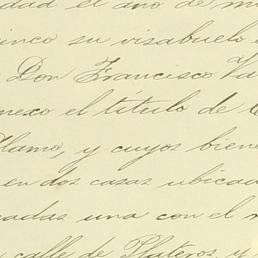 dad el año de mi
inco su visabuelo
Don Francisco Va
nexo el título de C
Alamo, y cuyos biene
en dos casas ubicad
cadas una con el n
calle de Plateros, y